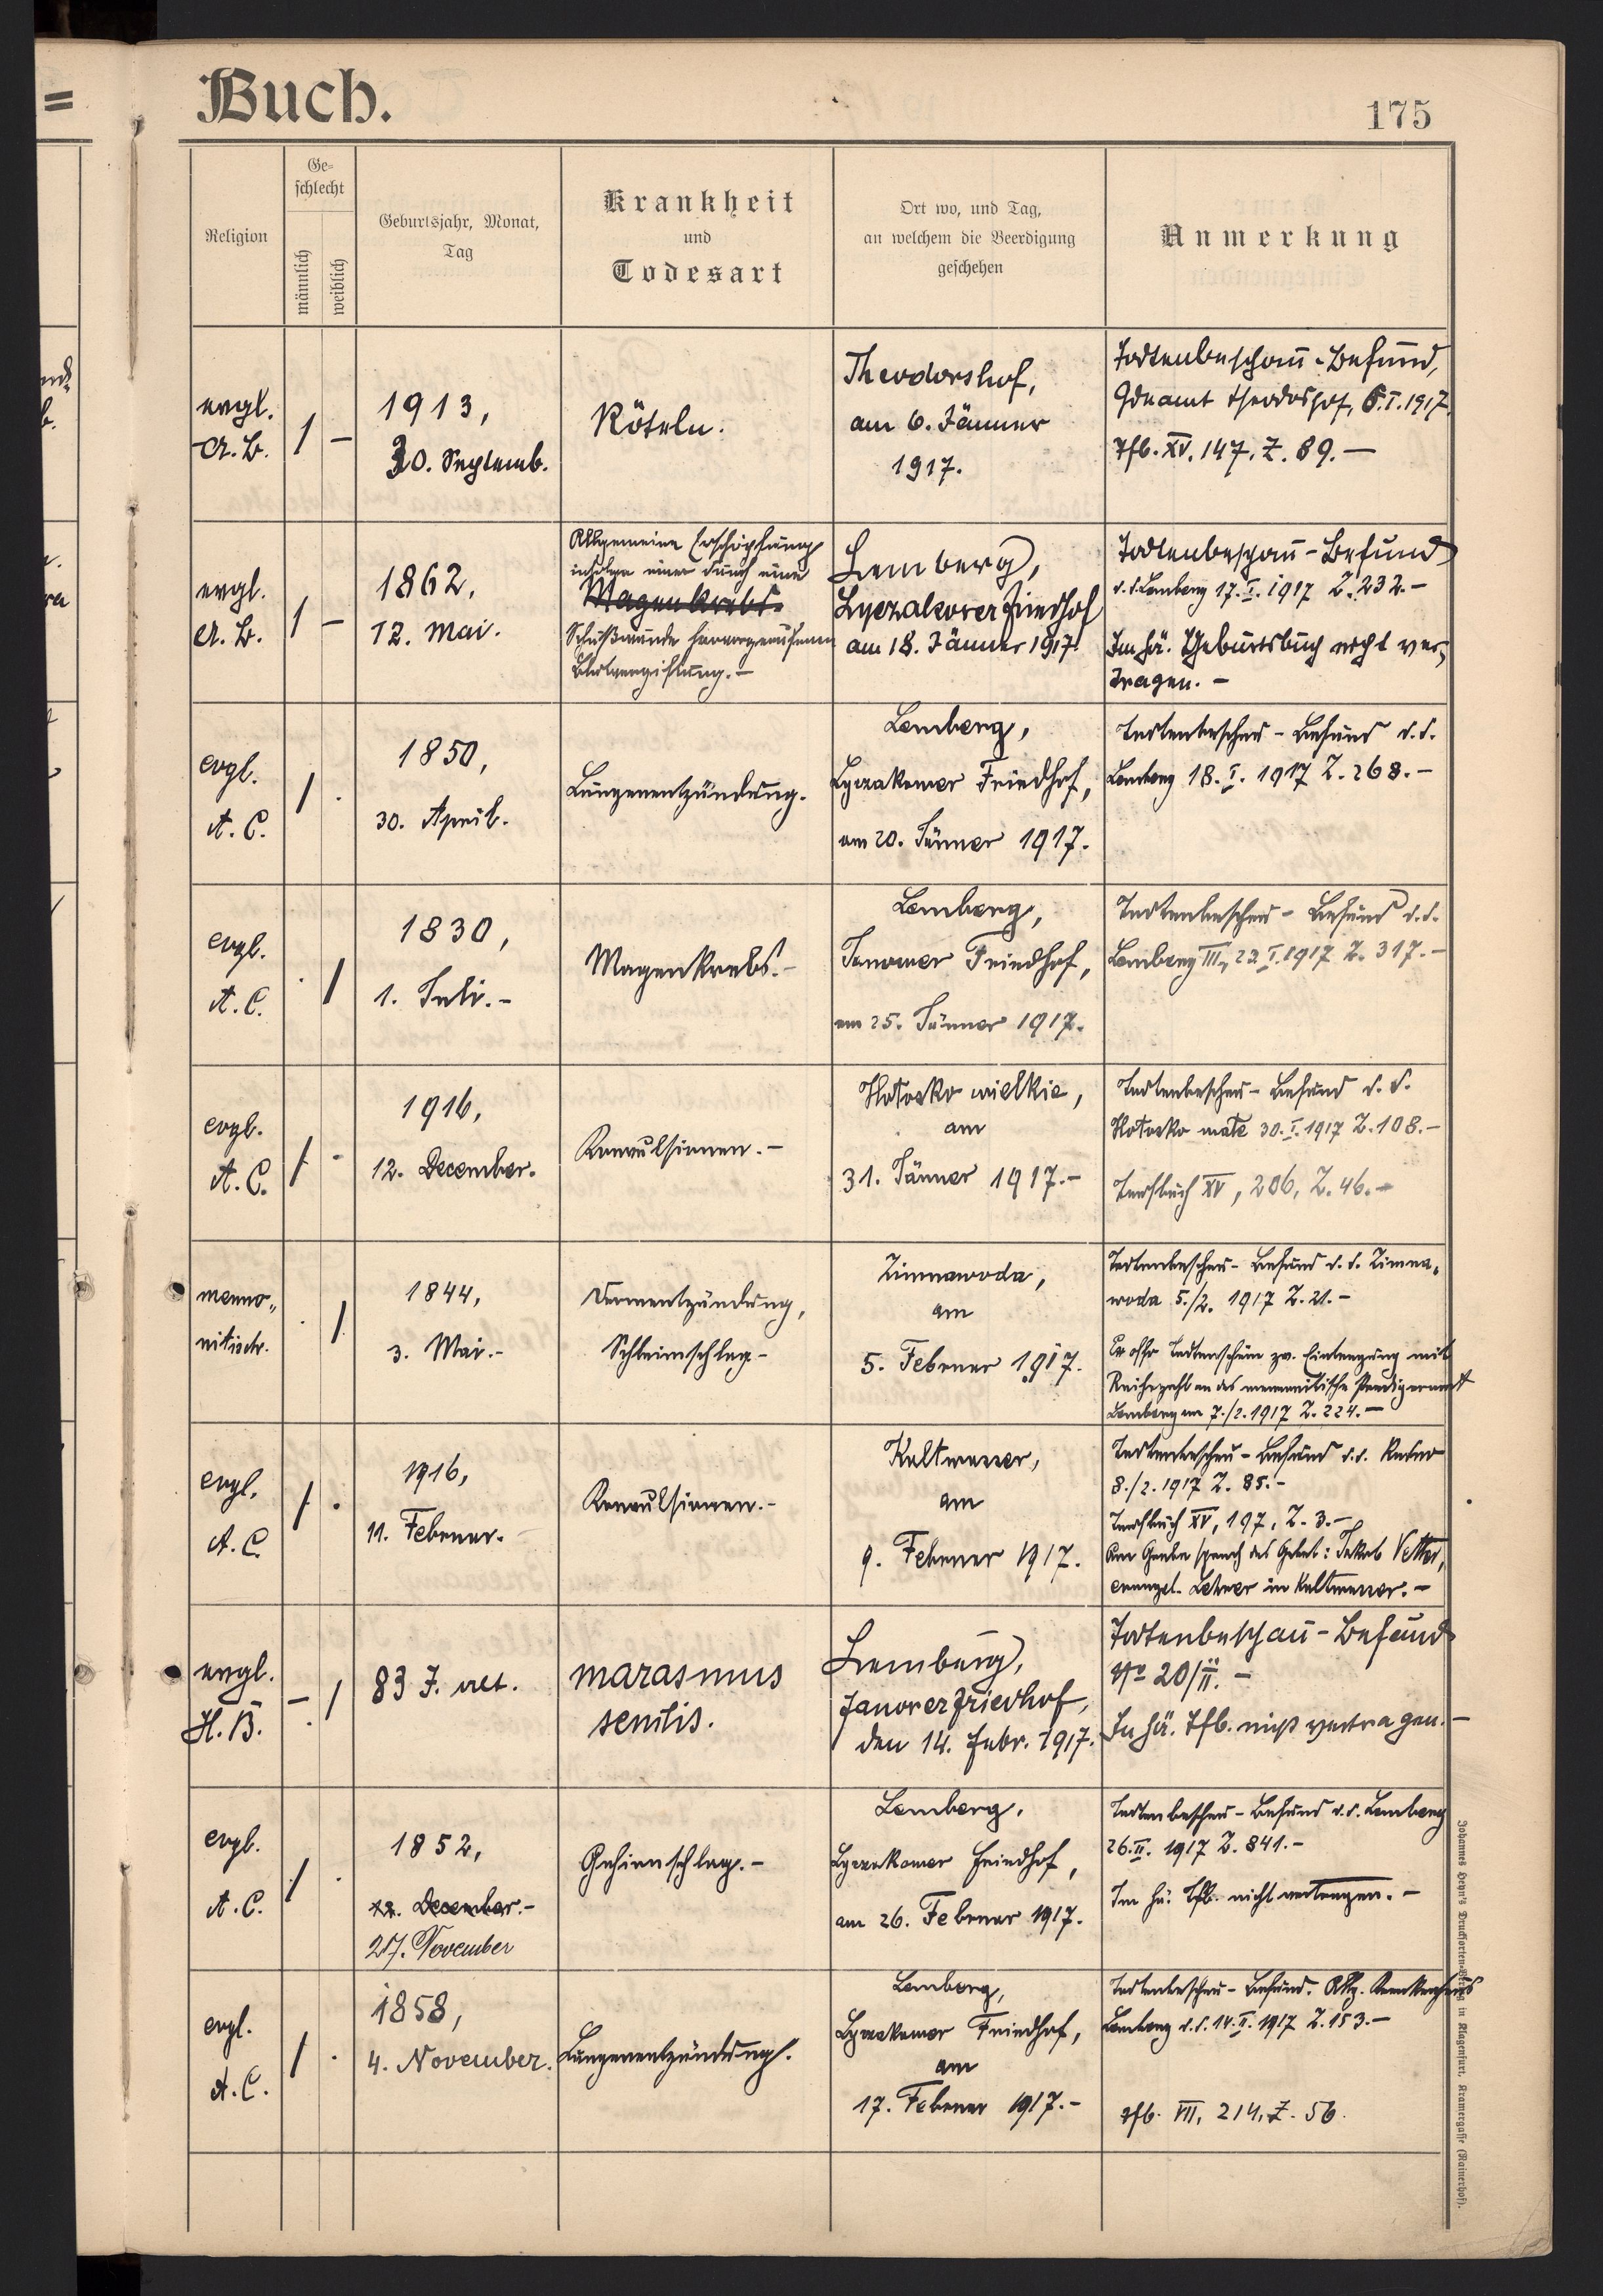 Buch.
175
Religion
Ge-
schlecht
männlich
weiblich
Geburtsjahr, Monat,
Tag
Krankheit
und
Todesart
Ort wo, und Tag,
an welchem die Beerdigung
geschehen
Anmerkung
evgl.
A. B.
1 –
1913,
30. Septemb.
Röteln.
Theodorshof,
am 6. Jänner
1917.
Todtenbeschau-Befund,
Gdeamt Theodorshof, 6.I.1917,
Tfb. XV. 147. Z. 89. –
evgl.
A. B.
1 –
1862,
12. Mai.
Allgemeine Erschöpfung
infolge einer durch eine
Magenkrebs.
Schußwunde hervorgerufenen
Blutvergiftung. –
Lemberg,
Lyczakower Friedhof
am 18. Jänner 1917.
Todtenbeschau-Befund
d. d. Lemberg 17. I. 1917 Z. 232. –
Im hä. Geburtsbuch nicht ver-
tragen. –
evgl.
A. C.
1 .
1850,
30. April.
Lungenentzündung.
Lemberg,
Lyczakower Friedhof,
am 20. Jänner 1917.
Todtenbeschau-Befund d. d.
Lemberg 18. I. 1917 Z. 268. –
evgl.
A. C.
. 1
1830,
1. Juli. –
Magenkrebs. –
Lemberg,
Janower Friedhof,
am 25. Jänner 1917.
Todtenbeschau-Befund d. d.
Lemberg III, 22. I. 1917 Z. 317. –
evgl.
A. C.
1 -
1916,
12. December.
Konvulsionen. –
Hołosko wielkie,
am
31. Jänner 1917. –
Todtenbeschau-Befund d. d.
Hołosko małe 30. I. 1917 Z. 108. –
Taufbuch XV, 206, Z. 46. –
menno-
nitisch.
. 1
1844,
3. Mai. –
Darmentzündung,
Schleimschlag –
Zimnawoda,
am
5. Februar 1917.
Todtenbeschau-Befund d. d. Zimna-
woda 5./2. 1917 Z. 21. –
Todtenschein zw. Eintragung mit
Reihezahl an das mennonitische Predigeramt
Lemberg am 7./2. 1917 Z. 224. –
evgl.
A. C.
1 .
1916,
11. Februar.
Konvulsionen. –
Kaltwasser,
am
9. Februar 1917.
Todtenbeschau-Befund d. d. Rudno
8./2. 1917 Z. 85. –
Taufbuch XV, 197, Z. 3. –
Am Grabe sprach das Gebet: Jakob Vetter,
evangel. Lehrer in Kaltwasser. –
evgl.
H. B.
– 1
83 J. alt.
marasmus
senilis.
Lemberg,
Janower Friedhof,
den 14. Febr. 1917.
Todtenbeschau-Befund
No 20/II. –
In hä. Tfb. nicht vertragen. –
evgl.
A. C.
1 .
1852,
December. –
27. November
Gehirnschlag. –
Lemberg,
Lyczakower Friedhof,
am 26. Februar 1917.
Todtenbeschau-Befund d. d. Lemberg
26. II. 1917 Z. 841. –
Im hä. Tfb. nicht vertragen. –
evgl.
A. C.
1 .
1858,
4. November.
Lungenentzündung.
Lemberg,
Lyczakower Friedhof,
am
17. Februar 1917. –
Todtenbeschau-Befund. Allg. Krankenhaus
Lemberg d. d. 14. II. 1917 Z. 153. –
Tfb. VII, 214, Z. 56.
Johannes Heyn's Drucksorten-Verlag in Klagenfurt, Kramergasse (Rainerhof).